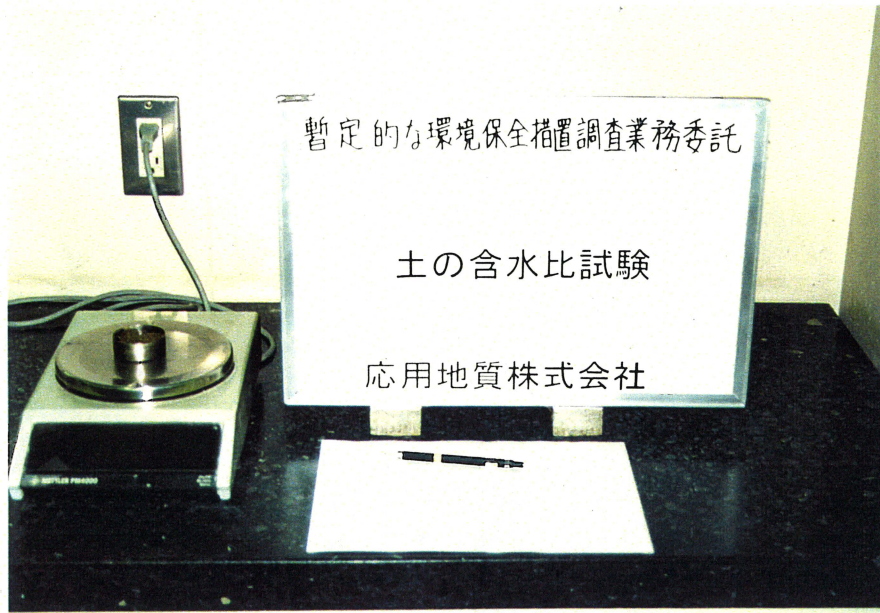 暫定的な環境保全措置調査業務委託
土の含水比試験
応用地質株式会社
METTLER PM4000